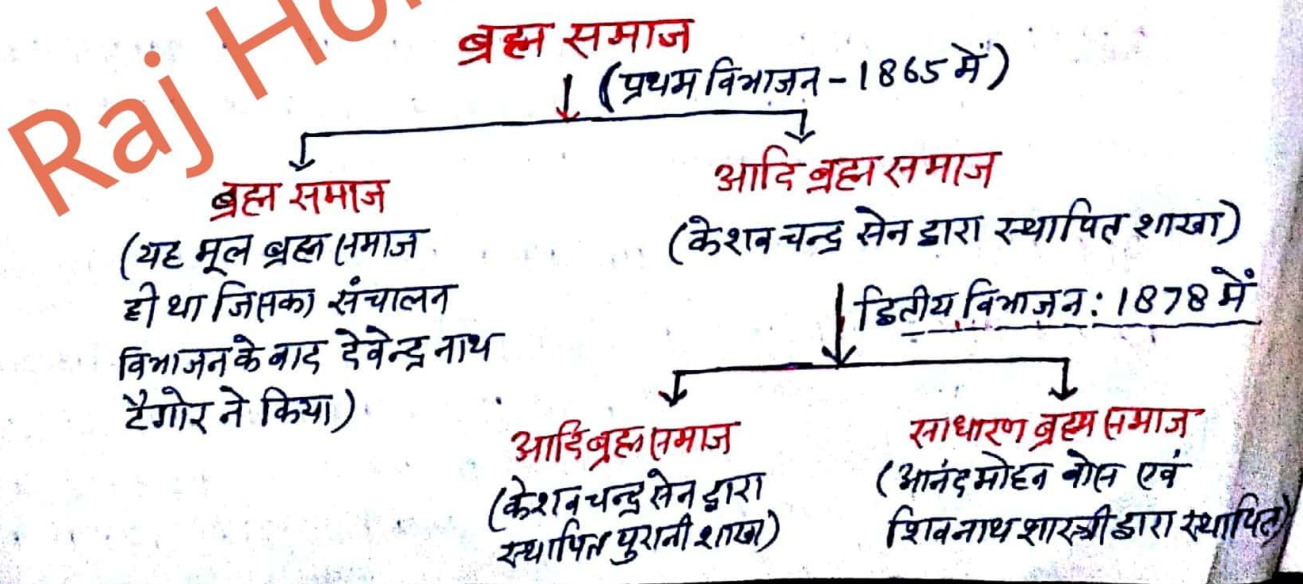 Raj Ho
ब्रह्म समाज
(प्रथम विभाजन - 1865 में)
ब्रह्म समाज
(यह मूल ब्रह्म समाज
ही था जिसका संचालन
विभाजन के बाद देवेन्द्र नाथ
टैगोर ने किया)
आदि ब्रह्म समाज
(केशव चन्द्र सेन द्वारा स्थापित शाखा)
द्वितीय विभाजन: 1878 में
आदि ब्रह्म समाज
(केशव चन्द्र सेन द्वारा
स्थापित पुरानी शाखा)
साधारण ब्रह्म समाज
(आनंद मोहन बोस एवं
शिवनाथ शास्त्री द्वारा स्थापित)